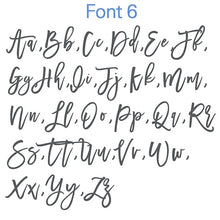 Font 6
Aa, Bb, Cc, Dd, Ee, Ff,
Gg Hh, Ii, Jj, Kk, Mm,
Nn, Ll, Oo, Pp, Qq, Rr
Ss, Tt, Uu, Vv, Ww,
Xx, Yy, Zz